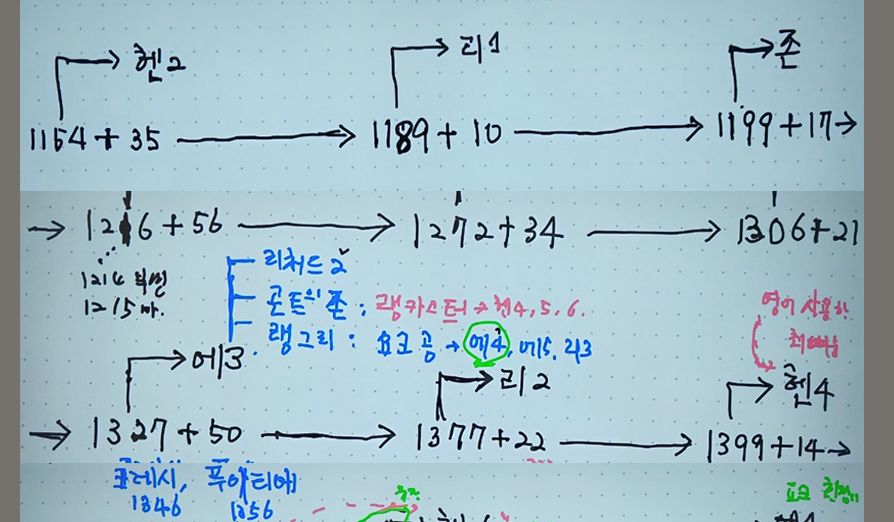 헨2
리1
존
1154 + 35 → 1189 + 10 → 1199 + 17 →
→ 1216 + 56 → 1272 + 34 → 1306 + 21
1214
1215 마.
리처드 2
곤트의 존 : 랭카스터 → 헨4, 5, 6.
랭그리 : 요크 공 → 에4, 에5, 리3
영어 사용한
에3.
리2
헨4
→ 1327 + 50 → 1377 + 22 → 1399 + 14 →
크레시, 푸아티에
1346 1356
요크